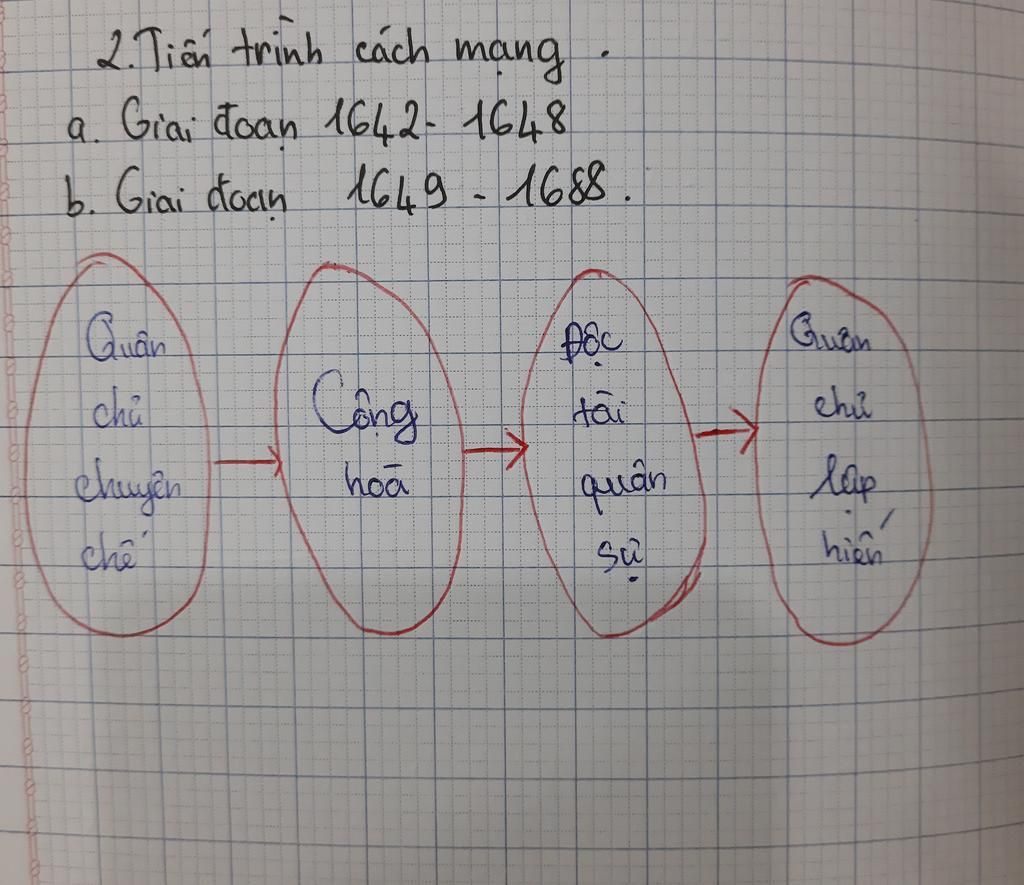 2. Tiến trình cách mạng.
a. Giai đoạn 1642 - 1648
b. Giai đoạn 1649 - 1688.
Quân
chủ
chuyên
chế
Cộng
hoà
Độc
tài
quân
sự
Quân
chủ
lập
hiến